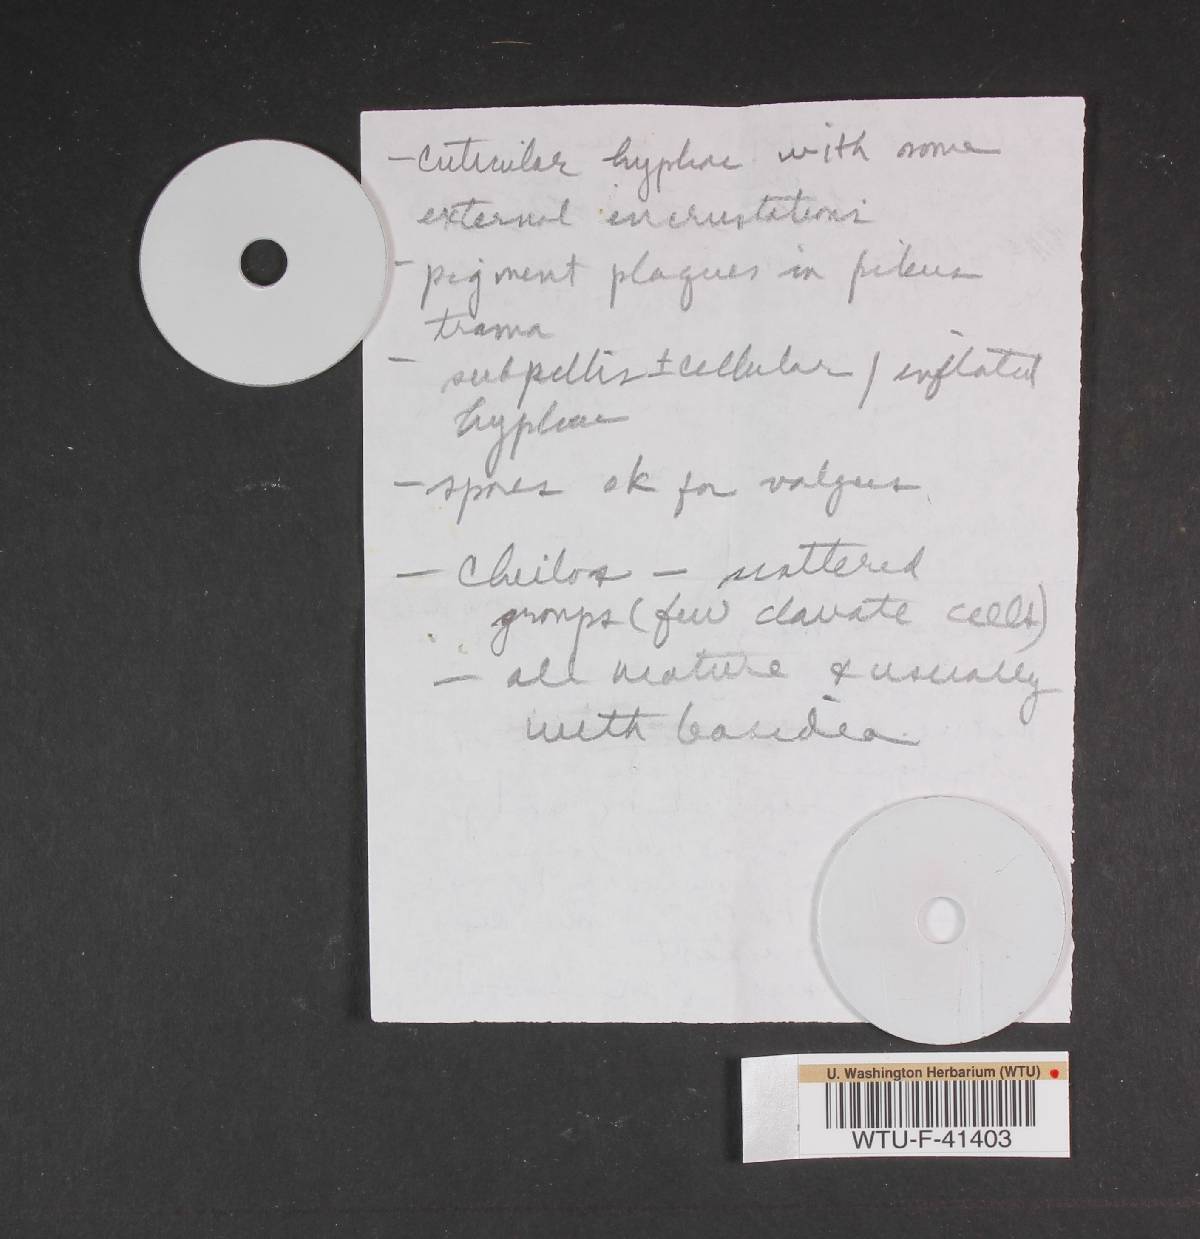 - cuticular hyphae with some
external incrustations
- pigment plaques in pileus
trama
- subpellis ± cellular / inflated
hyphae
- spores ok for valgus
- Cheilos - scattered
groups (few clavate cells)
- all mature & usually
with basidia
U. Washington Herbarium (WTU)
WTU-F-41403